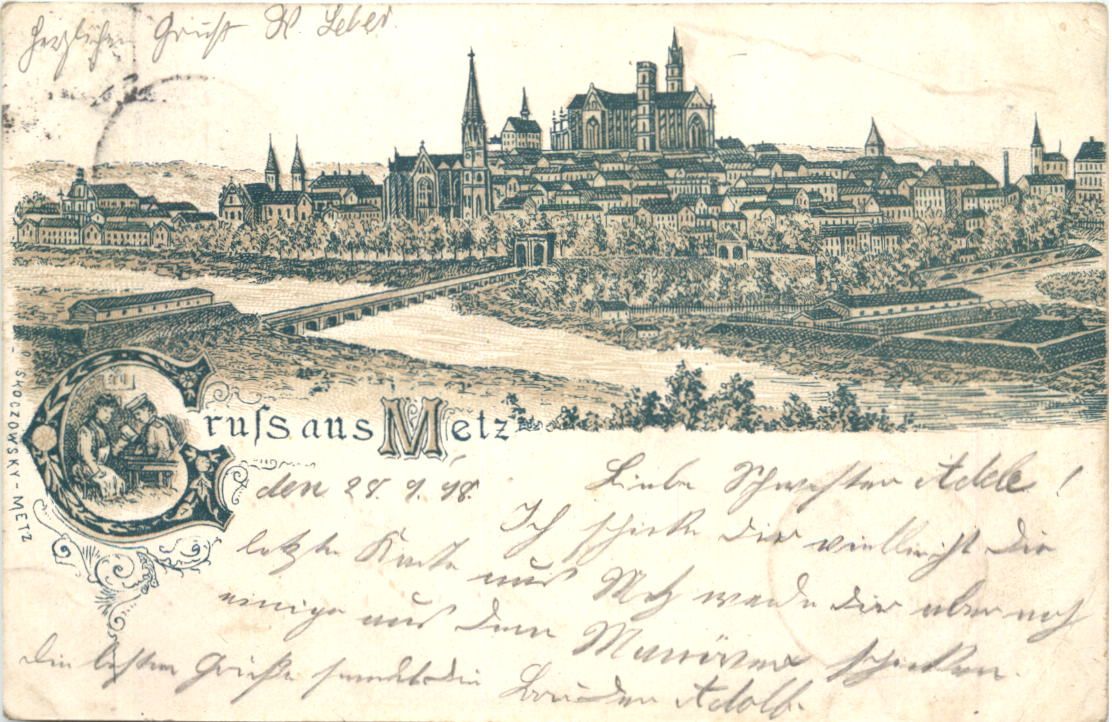 Herzlichen Gruß W. Leber
SKOCZOWSKY - METZ
Gruſs aus Metz
den 28. 9. 98.
Liebe Schwester Adele!
Ich schicke Dir vielleicht die
letzte Karte aus Metz werde dir aber noch
einige aus dem Manöver schicken.
Die besten Grüße sendet dir
Bruder Adolb.